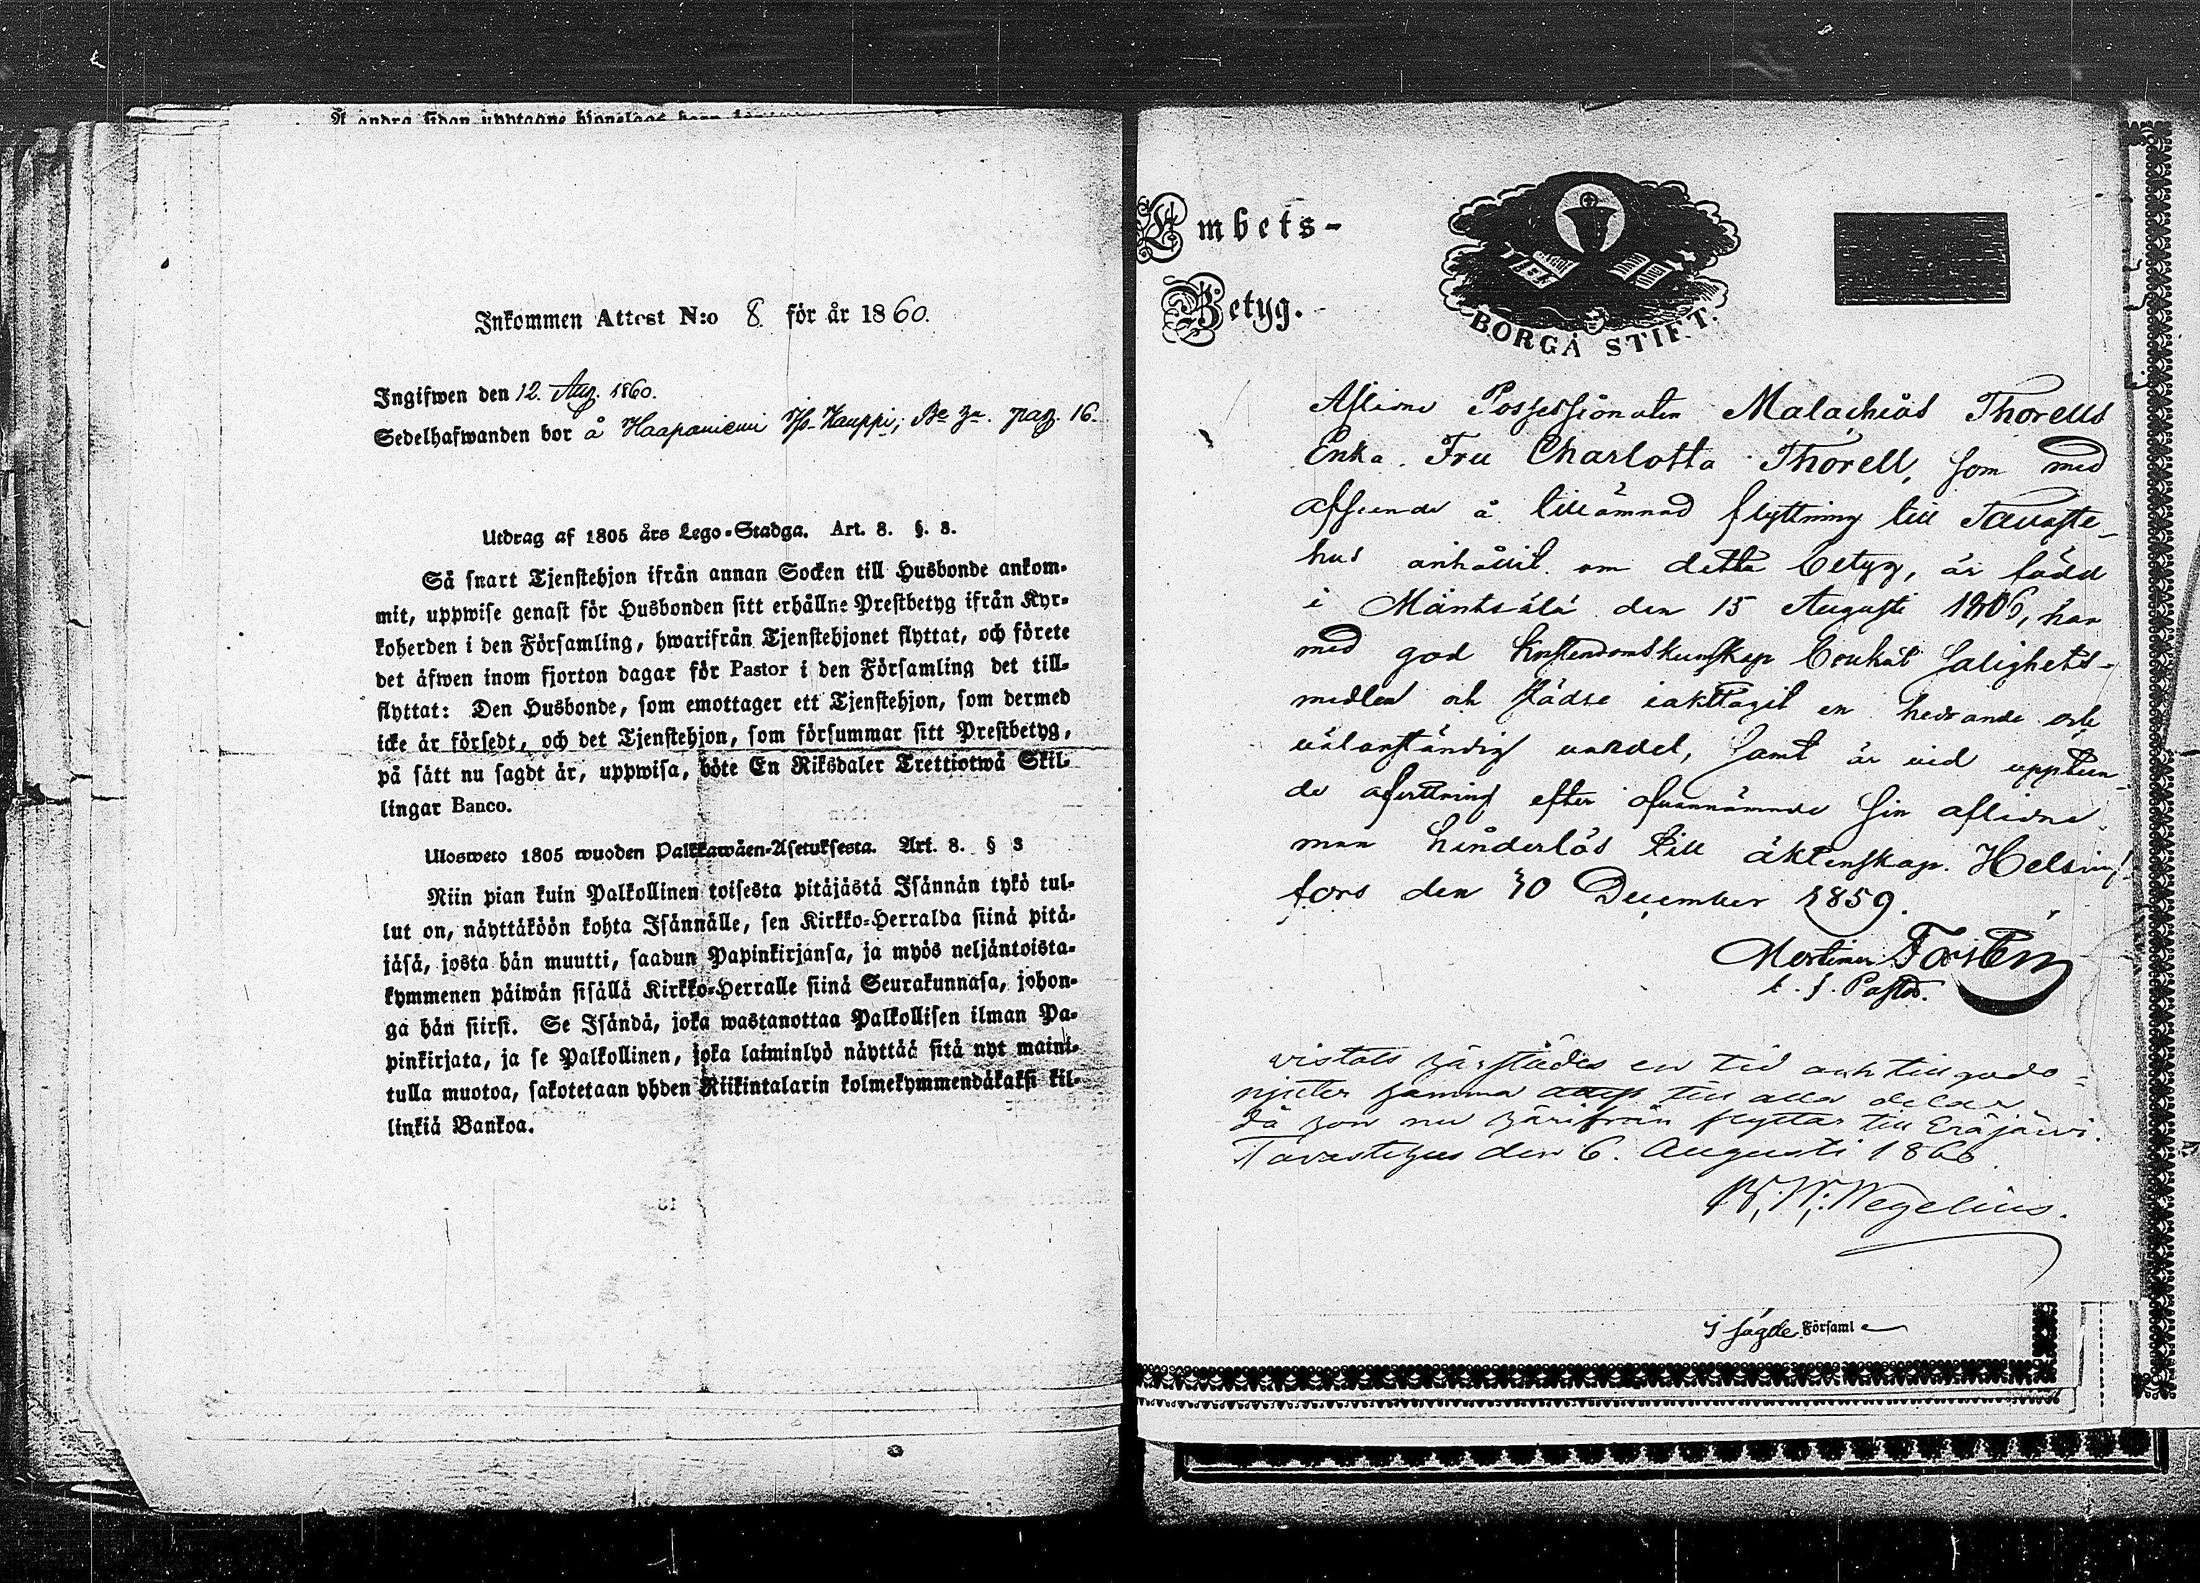 Å andra sidan upptagne hjonelags
Inkommen Attest N:o 8 för år 1860.
Ingifwen den 12. Aug. 1860.
Sedelhafwanden bor å Haapaniemi pag. 16.
Utdrag af 1805 års Lego-Stadga. Art. 8. §. 3.
Så snart Tjenstehjon ifrån annan Socken till Husbonde ankom-
mit, uppwise genast för Husbonden sitt erhållne Prestbetyg ifrån Kyr-
koherden i den Församling, hwarifrån Tjenstehjonet flyttat, och förete
det äfwen inom fjorton dagar för Pastor i den Församling det till-
flyttat: Den Husbonde, som emottager ett Tjenstehjon, som dermed
icke är försedt, och det Tjenstehjon, som försummar sitt Prestbetyg,
på sätt nu sagdt är, uppwisa, böte En Riksdaler Trettiotwå Skil-
lingar Banco.
Ulosweto 1805 wuoden Palkkawäen-Asetuksesta. Art. 8. § 3
Niin pian kuin Palkollinen toisesta pitäjästä Isännän tykö tul-
lut on, näyttäköön kohta Isännälle, sen Kirkko-Herralda siinä pitä-
jäsä, josta hän muutti, saadun Papinkirjansa, ja myös neljäntoista-
kymmenen päiwän sisällä Kirkko-Herralle siinä Seurakunnasa, johon-
ga hän siirsi. Se Isändä, joka wastanottaa Palkollisen ilman Pa-
pinkirjata, ja se Palkollinen, joka laiminlyö näyttää sitä nyt maini-
tulla muotoa, sakotetaan yhden Riikintalarin kolmekymmendäkaksi kil-
linkiä Bankoa.
Embets-
Betyg.
BORGÅ STIFT.
Aflidne Possessionaten Malachias Thorells
Enka Fru Charlotta Thorell, som med
afseende å tillämnad flyttning till Tavaste-
hus anhållit om detta betyg, är född
i Mäntsälä den 15 Augusti 1806, har
med god kristendomskunskap brukat salighets-
medlen och städse iakttagit en hedrande och
välanständig vandel, samt är vid
efter ofvannämnde sin aflidne
man hinderlös till äktenskap. Helsing-
fors den 30 December 1859.
Forstén
t. f. Pastor.
vistats härstädes en tid och tillgodo-
njuter samma till alla delar
då hon nu härifrån flyttar till Eräjärvi.
Tavastehus den 6. Augusti 1860
Wegelius.
I sagde Församl